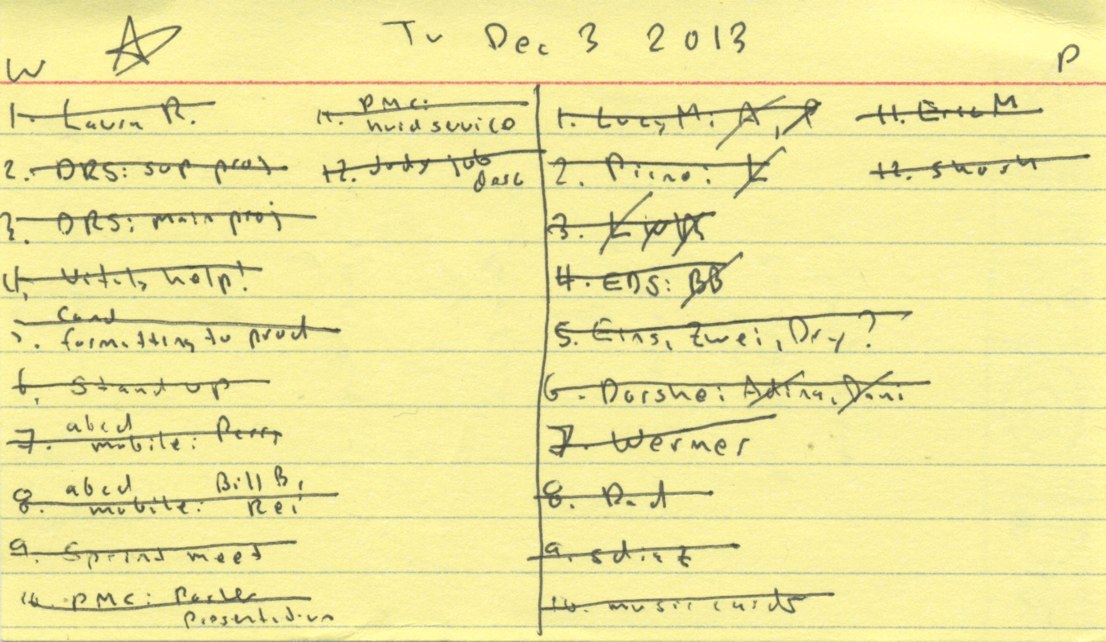 Tu Dec 3 2013
W
P
1. Laura R.
2. DRS: sup proj
3. DRS: main proj
4. Vitals help!
5. Card
formatting to prod
6. Stand up
7. abcd
mobile: Perry
8. abcd Bill B,
mobile: Rei
9. Sprint meet
10. PMC: Poster
Presentation
11. PMC:
12. Judy job
desc
1. Lucy M: A, P
2. Piano: L
3.
4. EDS: BB
5. Eins, Zwei, Dry?
6. Darshe: Adina, Dani
7. Wermer
8. Dad
9.
10. music cards
11. Eric M
12. Shush